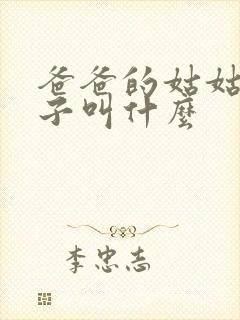 爸爸的姑姑
子叫什麼
李忠志